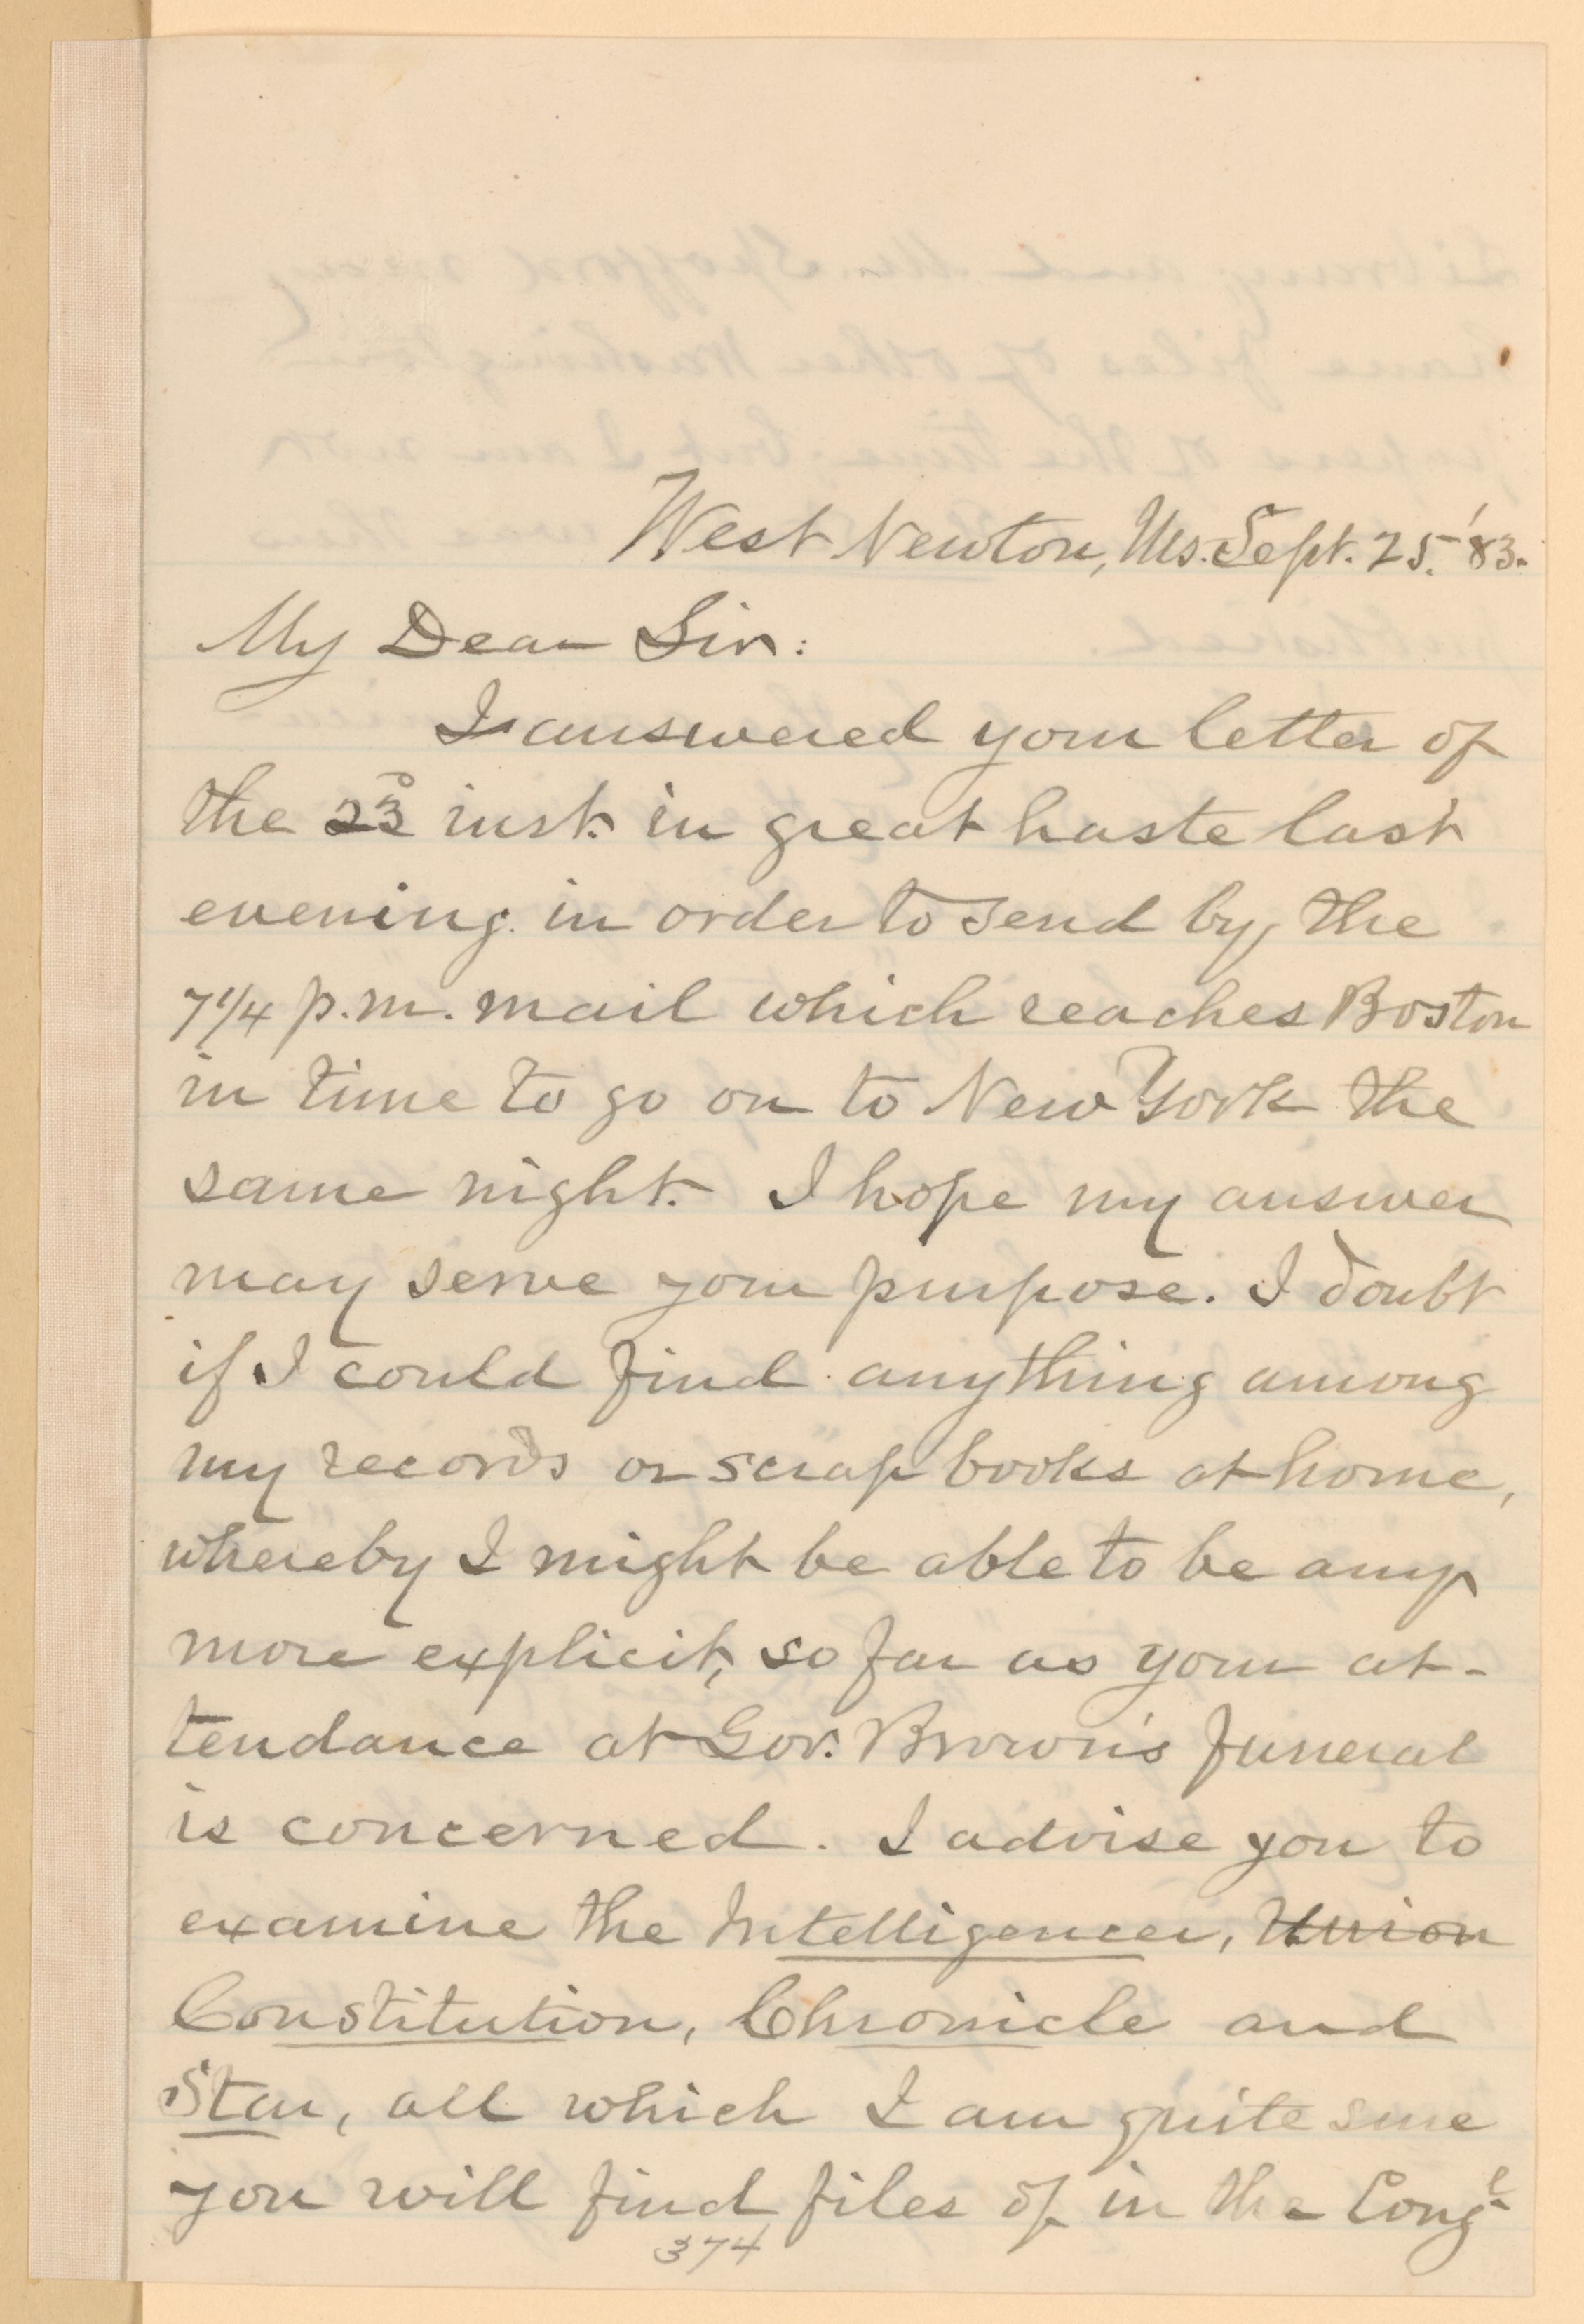 West Newton, Ms. Sept. 25. '83.
My Dear Sir:
I answered your letter of
the 23d inst. in great haste last
evening in order to send by the
7 1/4 p.m. mail which reaches Boston
in time to go on to New York the
same night. I hope my answer
may serve your purpose. I doubt
if I could find anything among
my records or scrap books at home,
whereby I might be able to be any
more explicit, so far as your at-
tendance at Gov. Brown's funeral
is concerned. I advise you to
examine the Intelligencer, Union
Constitution, Chronicle and
Star, all which I am quite sure
you will find files of in the Congl
374